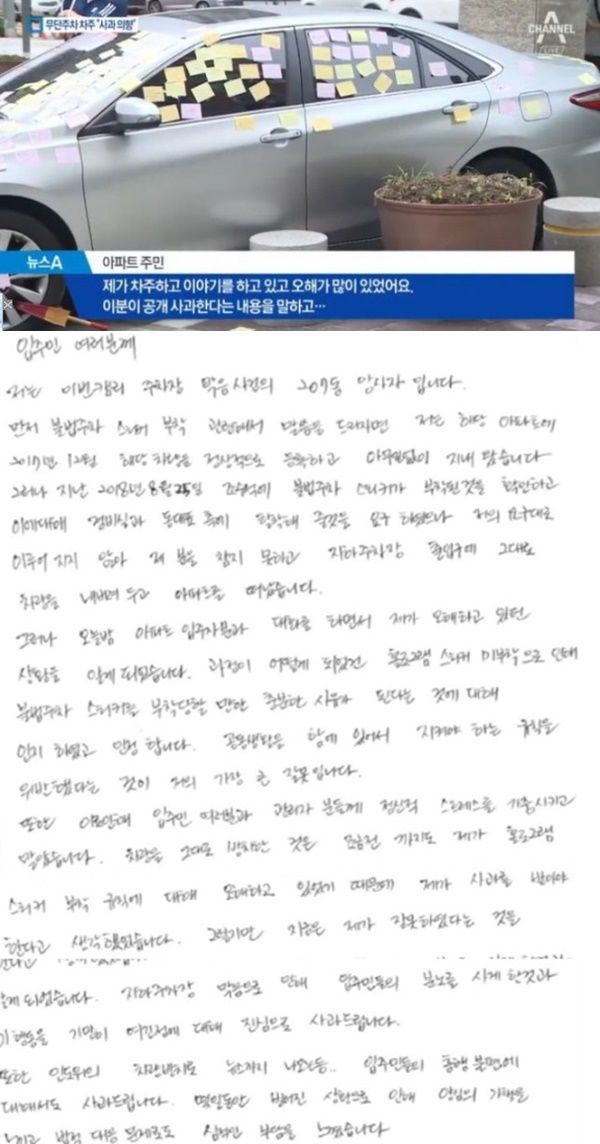 무단주차 차주 "사과 의향"
CHANNEL A
LIVE
뉴스A 아파트 주민
제가 차주하고 이야기를 하고 있고 오해가 많이 있었어요.
이분이 공개 사과한다는 내용을 말하고…
입주민 여러분께
저는 이번 캠리 주차장 막음 사건의 207동 당사자 입니다.
먼저 불법주차 스티커 부착 관련해서 말씀을 드리자면 저는 해당 아파트에
2017년 12월 해당 차량을 정상적으로 등록하고 아무일없이 지내 왔습니다
그러나 지난 2018년 8월 25일 조수석에 불법주차 스티커가 부착된것을 확인하고
이에대해 경비실과 동대표 측에 탈착해 줄것을 요구 하였으나 저의 요구대로
이루어 지지 않아 제 분을 참지 못하고 지하주차장 출입구에 그대로
차량을 내버려 두고 아파트를 떠났습니다.
그러나 오늘밤 아파트 입주자분과 대화를 하면서 제가 오해하고 있던
상황을 알게 되었습니다. 과정이 어떻게 되었건 홀로그램 스티커 미부착으로 인해
불법주차 스티커를 부착당할 만한 충분한 사유가 된다는 것에 대해
인지 하였고 인정 합니다. 공동생활을 함에 있어서 지켜야 하는 규칙을
위반했다는 것이 저의 가장 큰 잘못입니다.
또한 이로인해 입주민 여러분과 관리자 분들께 정신적 스트레스를 가중시키고
말았습니다. 차량을 그대로 방치한 것은 조금전 까지도 제가 홀로그램
스티커 부착 규칙에 대해 오해하고 있었기 때문에 제가 사과를 받아야
한다고 생각했었습니다. 그렇지만 지금은 제가 잘못하였다는 것을
알게 되었습니다. 지하주차장 막음으로 인해 입주민들의 분노를 사게 한것과
행동을 기망이 여긴점에 대해 진심으로 사과드립니다.
또한 인도위의 차량방치로 뉴스까지 나오는등.. 입주민들의 통행 불편에
대해서도 사과드립니다. 몇일동안 벌어진 상황으로 인해 양심의 가책을
느끼고 법적 대응 문제로도 심적인 부담을 느꼈습니다